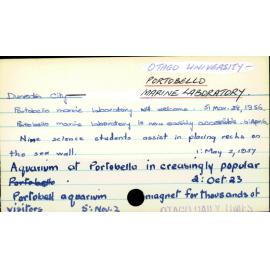 OTAGO UNIVERSITY -
PORTOBELLO
MARINE LABORATORY.
Dunedin City
Portobello marine laboratory will welcome. 5: Mar. 28, 1956
Portobello marine laboratory is now easily accessible. 5: April
Nine science students assist in placing rocks on
the sea wall. 1: May 2, 1957
Aquarium at Portobello increasingly popular
Portobello 2: Oct 23
Portobell aquarium magnet for thousands of
visitors 5: Nov. 2
OTAGO DAILY TIMES